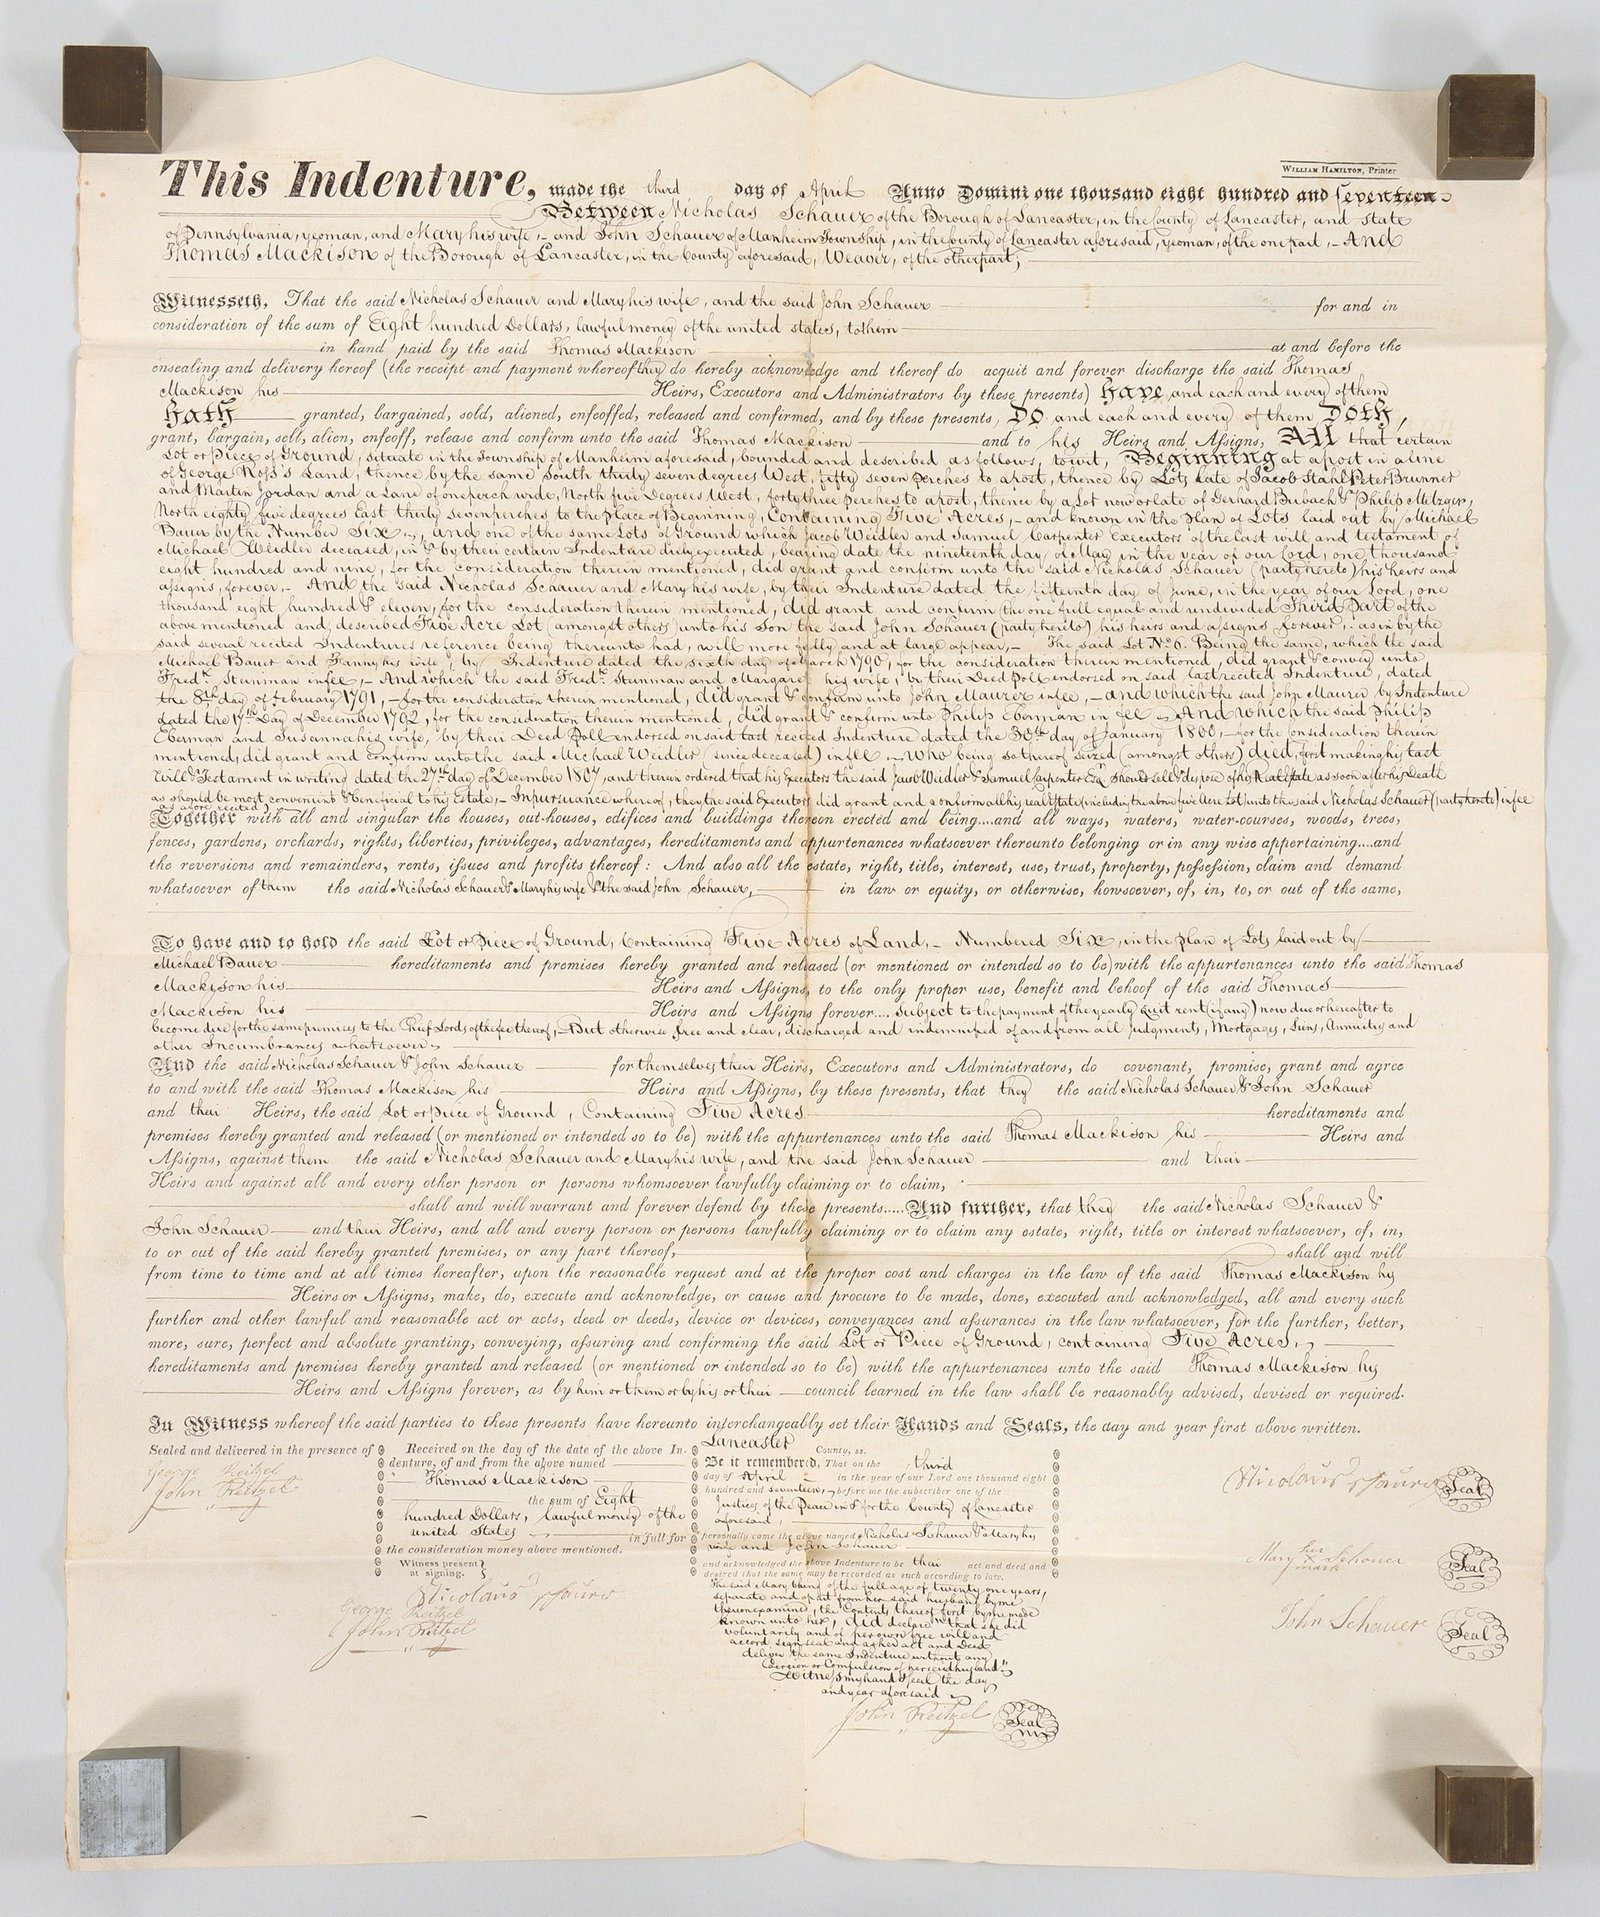 WILLIAM HAMILTON, Printer
This Indenture, made the third day of April Anno Domini one thousand eight hundred and seventeen
Between Nicholas Schauer of the Borough of Lancaster, in the County of Lancaster, and state
of Pennsylvania, yeoman, and Mary his wife, - and John Schauer of Manheim Township, in the County of Lancaster aforesaid, yeoman, of the one part, - And
Thomas Mackison of the Borough of Lancaster, in the County aforesaid, Weaver, of the other part;
Witnesseth, That the said Nicholas Schauer and Mary his wife, and the said John Schauer for and in
consideration of the sum of Eight hundred Dollars, lawful money of the united states, to them
in hand paid by the said Thomas Mackison at and before the
ensealing and delivery hereof (the receipt and payment whereof they do hereby acknowledge and thereof do acquit and forever discharge the said Thomas
Mackison his Heirs, Executors and Administrators by these presents) have and each and every of them
hath granted, bargained, sold, aliened, enfeoffed, released and confirmed, and by these presents, Do and each and every of them Doth,
grant, bargain, sell, alien, enfeoff, release and confirm unto the said Thomas Mackison and to his Heirs and Assigns, All that certain
Lot or Piece of Ground, situate in the Township of Manheim aforesaid, bounded and described as follows, to wit, Beginning at a post in a line
of George Ross's Land, thence by the same South thirty seven degrees West, fifty seven Perches to a post, thence by Lots late of Jacob Stahl Peter Brunner
and Martin Jordan and a Lane of one perch wide, North five Degrees West, forty three Perches to a post, thence by a Lot now or late of Gerhard Bubach & Philip Metzger,
North eighty five degrees East thirty seven perches to the Place of Beginning, Containing Five Acres, - and known in the Plan of Lots laid out by Michael
Bauer by the Number Six, and one of the same Lots of Ground which Jacob Weidler and Samuel Carpenter Executors of the last will and testament of
Michael Weidler deceased, in & by their certain Indenture duly executed, bearing date the nineteenth day of May in the year of our Lord, one thousand
eight hundred and nine, for the consideration therein mentioned, did grant and confirm unto the said Nicholas Schauer (party hereto) his heirs and
assigns, forever. - And the said Nicholas Schauer and Mary his wife, by their Indenture dated the fifteenth day of June, in the year of our Lord, one
thousand eight hundred & eleven, for the consideration therein mentioned, did grant and confirm the one full equal and undivided Third Part of the
above mentioned and described Five Acre Lot (amongst others) unto his Son the said John Schauer (party hereto) his heirs and assigns forever, - as in by the
said several recited Indentures reference being thereunto had, will more fully and at large appear, - The said Lot No. 6. Being the same, which the said
Michael Bauer and Fanny his wife, by Indenture dated the sixth day of March 1790, for the consideration therein mentioned, did grant & convey unto
Fredk. Stunman in fee, - And which the said Fredk. Stunman and Margaret his wife, by their Deed Poll endorsed on said last recited Indenture, dated
the 8th day of February 1791, - for the consideration therein mentioned, did grant & confirm unto John Maurer in fee, - and which the said John Maurer by Indenture
dated the 17th Day of December 1792, for the consideration therein mentioned, did grant & confirm unto Philip Eberman in fee - And which the said Philip
Eberman and Susanna his wife, by their Deed Poll endorsed on said last recited Indenture dated the 30th day of January 1800, - for the consideration therein
mentioned, did grant and confirm unto the said Michael Weidler (since deceased) in fee - Who being so thereof seized (amongst others) died, first making his last
Will & Testament in writing dated the 27th day of December 1807, and therein ordered that his Executors the said Jacob Weidler & Samuel Carpenter Esqr. should sell & dispose of his Real Estate as soon after his Death
as should be most convenient & beneficial to his Estate, - In pursuance whereof, they the said Executors did grant and confirm all his real Estate (including the above five Acre Lot) unto the said Nicholas Schauer (party hereto) in fee
as afore recited,
Together with all and singular the houses, out-houses, edifices and buildings thereon erected and being....and all ways, waters, water-courses, woods, trees,
fences, gardens, orchards, rights, liberties, privileges, advantages, hereditaments and appurtenances whatsoever thereunto belonging or in any wise appertaining....and
the reversions and remainders, rents, issues and profits thereof: And also all the estate, right, title, interest, use, trust, property, possession, claim and demand
whatsoever of them the said Nicholas Schauer & Mary his wife & the said John Schauer, in law or equity, or otherwise, howsoever, of, in, to, or out of the same,
To have and to hold the said Lot or Piece of Ground, Containing Five Acres of Land, - Numbered Six, in the plan of Lots laid out by
Michael Bauer hereditaments and premises hereby granted and released (or mentioned or intended so to be) with the appurtenances unto the said Thomas
Mackison his Heirs and Assigns, to the only proper use, benefit and behoof of the said Thomas
Mackison his Heirs and Assigns forever.... Subject to the payment of the yearly quit rent (if any) now due or hereafter to
become due for the same premises to the Chief Lords of the fee thereof, - But otherwise free and clear, discharged and indemnified of and from all Judgments, Mortgages, Liens, Annuities and
other Incumbrances whatsoever.
And the said Nicholas Schauer & John Schauer for themselves their Heirs, Executors and Administrators, do covenant, promise, grant and agree
to and with the said Thomas Mackison his Heirs and Assigns, by these presents, that they the said Nicholas Schauer & John Schauer
and their Heirs, the said Lot or piece of Ground, Containing Five Acres hereditaments and
premises hereby granted and released (or mentioned or intended so to be) with the appurtenances unto the said Thomas Mackison his Heirs and
Assigns, against them the said Nicholas Schauer and Mary his wife, and the said John Schauer and their
Heirs and against all and every other person or persons whomsoever lawfully claiming or to claim,
shall and will warrant and forever defend by these presents.....And further, that they the said Nicholas Schauer &
John Schauer and their Heirs, and all and every person or persons lawfully claiming or to claim any estate, right, title or interest whatsoever, of, in,
to or out of the said hereby granted premises, or any part thereof, shall and will
from time to time and at all times hereafter, upon the reasonable request and at the proper cost and charges in the law of the said Thomas Mackison his
Heirs or Assigns, make, do, execute and acknowledge, or cause and procure to be made, done, executed and acknowledged, all and every such
further and other lawful and reasonable act or acts, deed or deeds, device or devices, conveyances and assurances in the law whatsoever, for the further, better,
more, sure, perfect and absolute granting, conveying, assuring and confirming the said Lot or Piece of Ground, containing Five Acres,
hereditaments and premises hereby granted and released (or mentioned or intended so to be) with the appurtenances unto the said Thomas Mackison his
Heirs and Assigns forever, as by him or them or by his or their council learned in the law shall be reasonably advised, devised or required.
In Witness whereof the said parties to these presents have hereunto interchangeably set their Hands and Seals, the day and year first above written.
Sealed and delivered in the presence of
George Reitzel
John Reitzel
Received on the day of the date of the above In-
denture, of and from the above named
Thomas Mackison
the sum of Eight
hundred Dollars, lawful money of the
united States in full for
the consideration money above mentioned.
Witness present
at signing.
Nicolaus Schaurer
George Reitzel
John Reitzel
Lancaster County, ss.
Be it remembered, That on the third
day of April in the year of our Lord one thousand eight
hundred and seventeen, before me the subscriber one of the
Justices of the Peace in & for the County of Lancaster
aforesaid,
personally came the above named Nicholas Schauer & Mary his
wife and John Schauer
and acknowledged the above Indenture to be their act and deed and
desired that the same may be recorded as such according to law.
The said Mary being of the full age of twenty one years,
separate and apart from her said husband by me
thereon examined, the Contents thereof first by me made
known unto her, did declare that she did
voluntarily and of her own free will and
accord sign seal and as her act and Deed
deliver the same Indenture without any
Coercion or Compulsion of her said husband.
Witness my hand & seal the day
and year aforesaid
John Reitzel Seal
Nicolaus Schaurer Seal
her
Mary X Schauer Seal
mark
John Schauer Seal